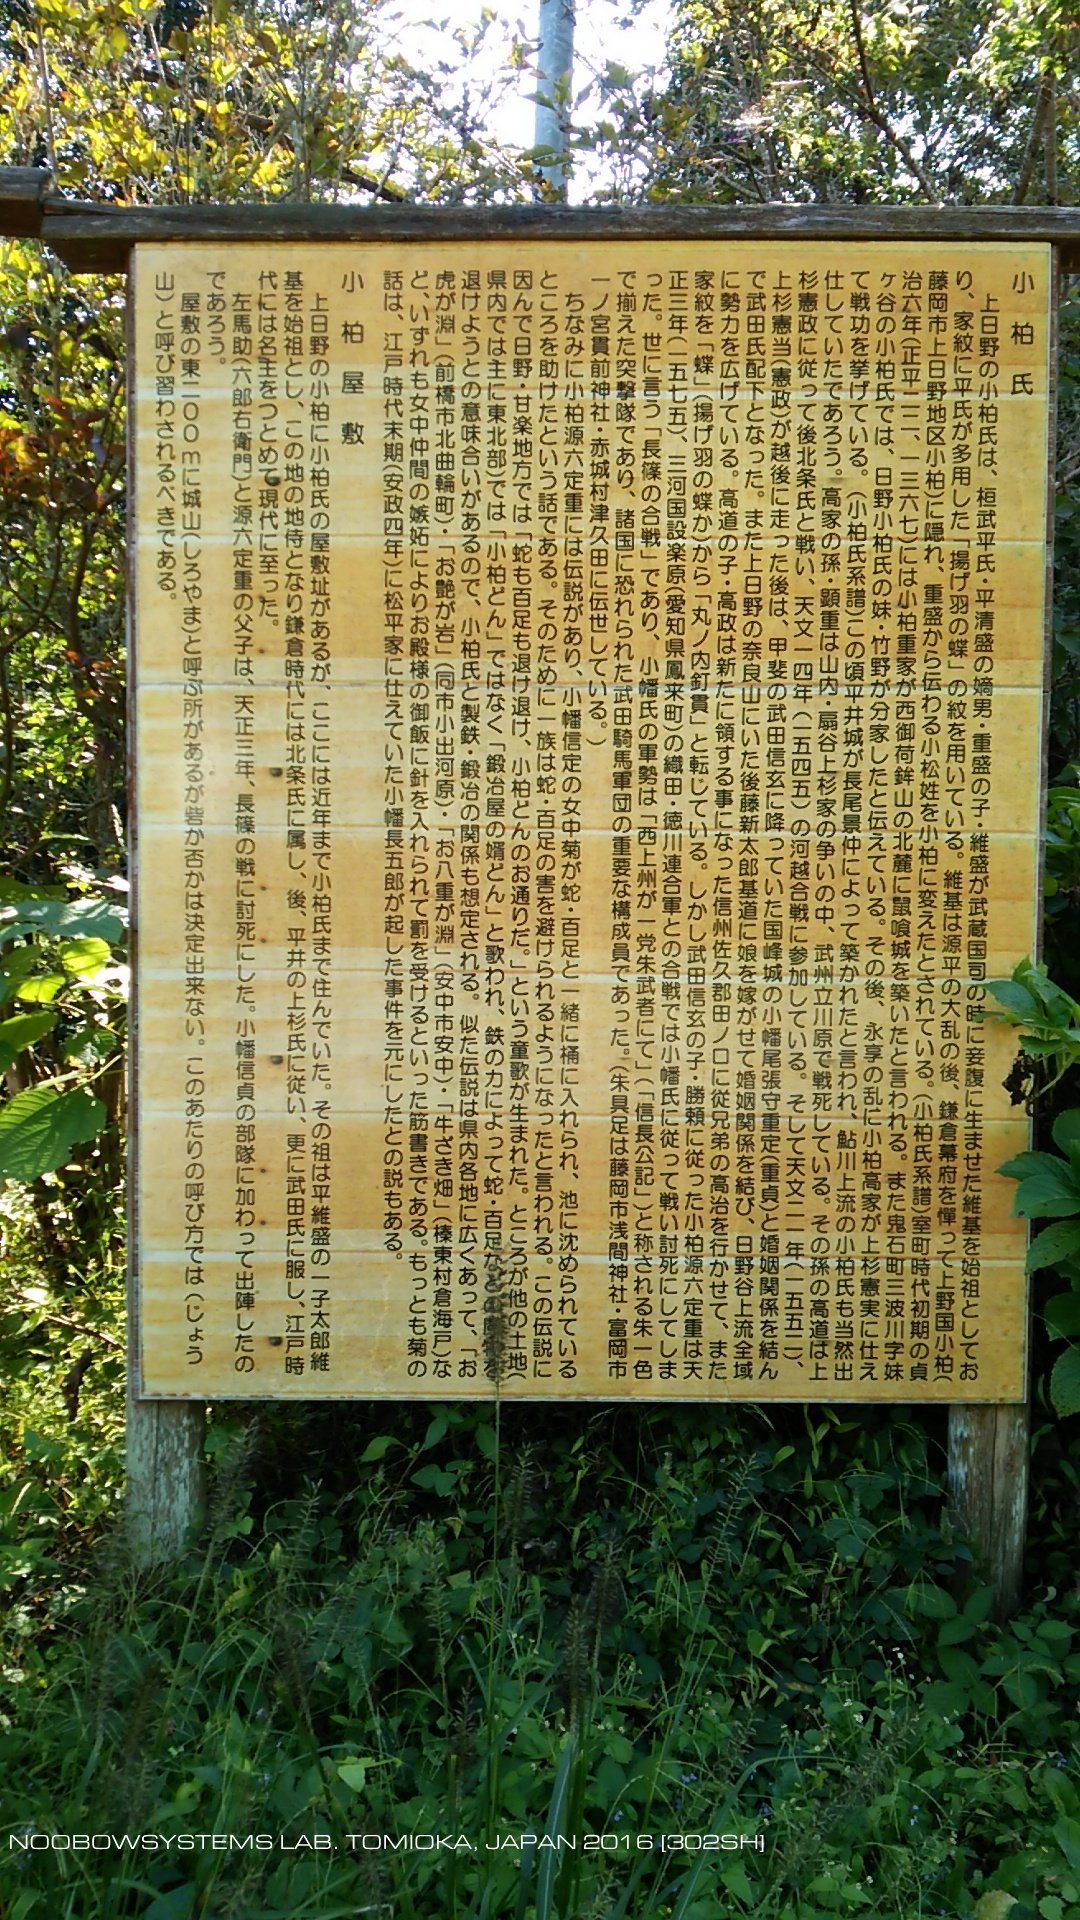 小柏氏
　上日野の小柏氏は、桓武平氏・平清盛の嫡男・重盛の子・維盛が武蔵国司の時に妾腹に生ませた維基を始祖としてお
り、家紋に平氏が多用した「揚げ羽の蝶」の紋を用いている。維基は源平の大乱の後、鎌倉幕府を憚って上野国小柏(
藤岡市上日野地区小柏)に隠れ、重盛から伝わる小松姓を小柏に変えたとされている。(小柏氏系譜)室町時代初期の貞
治六年(正平二二、一三六七)には小柏重家が西御荷鉾山の北麓に鼠喰城を築いたと言われる。また鬼石町三波川字妹
ヶ谷の小柏氏では、日野小柏氏の妹・竹野が分家したと伝えている。その後、永享の乱に小柏高家が上杉憲実に仕え
て戦功を挙げている。(小柏氏系譜)この頃平井城が長尾景仲によって築かれたと言われ、鮎川上流の小柏氏も当然出
仕していたであろう。高家の孫・顕重は山内・扇谷上杉家の争いの中、武州立川原で戦死している。その孫の高道は上
杉憲政に従って後北条氏と戦い、天文一四年(一五四五)の河越合戦に参加している。そして天文二一年(一五五二)、
上杉憲当(憲政)が越後に走った後は、甲斐の武田信玄に降っていた国峰城の小幡尾張守重定(重貞)と婚姻関係を結ん
で武田氏配下となった。また上日野の奈良山にいた後藤新太郎基道に娘を嫁がせて婚姻関係を結び、日野谷上流全域
に勢力を広げている。高道の子・高政は新たに領する事になった信州佐久郡田ノ口に従兄弟の高治を行かせて、また
家紋を「蝶」(揚げ羽の蝶か)から「丸ノ内釘貫」と転じている。しかし武田信玄の子・勝頼に従った小柏源六定重は天
正三年(一五七五)、三河国設楽原(愛知県鳳来町)の織田・徳川連合軍との合戦では小幡氏に従って戦い討死にしてしま
った。世に言う「長篠の合戦」であり、小幡氏の軍勢は「西上州が一党朱武者にて」(「信長公記」)と称される朱一色
で揃えた突撃隊であり、諸国に恐れられた武田騎馬軍団の重要な構成員であった。(朱具足は藤岡市浅間神社・富岡市
一ノ宮貫前神社・赤城村津久田に伝世している。)
　ちなみに小柏源六定重には伝説があり、小幡信定の女中菊が蛇・百足と一緒に桶に入れられ、池に沈められている
ところを助けたという話である。そのために一族は蛇・百足の害を避けられるようになったと言われる。この伝説に
因んで日野・甘楽地方では「蛇も百足も退け退け、小柏どんのお通りだ。」という童歌が生まれた。ところが他の土地(
県内では主に東北部)では「小柏どん」ではなく「鍛冶屋の婿どん」と歌われ、鉄の力によって蛇・百足などの
退けようとの意味合いがあるので、小柏氏と製鉄・鍛冶の関係も想定される。似た伝説は県内各地に広くあって、「お
虎が淵」(前橋市北曲輪町)・「お艶が岩」(同市小出河原)・「お八重が淵」(安中市安中)・「牛ざき畑」(榛東村倉海戸)な
ど、いずれも女中仲間の嫉妬によりお殿様の御飯に針を入れられて罰を受けるといった筋書きである。もっとも菊の
話は、江戸時代末期(安政四年)に松平家に仕えていた小幡長五郎が起した事件を元にしたとの説もある。
小柏屋敷
　上日野の小柏に小柏氏の屋敷址があるが、ここには近年まで小柏氏まで住んでいた。その祖は平維盛の一子太郎維
基を始祖とし、この地の地侍となり鎌倉時代には北条氏に属し、後、平井の上杉氏に従い、更に武田氏に服し、江戸時
代には名主をつとめて現代に至った。
　左馬助(六郎右衛門)と源六定重の父子は、天正三年、長篠の戦に討死にした。小幡信貞の部隊に加わって出陣したの
であろう。
　屋敷の東二００ｍに城山(しろやま)と呼ぶ所があるが砦か否かは決定出来ない。このあたりの呼び方では(じょう
山)と呼び習わされるべきである。
NOOBOWSYSTEMS LAB. TOMIOKA, JAPAN 2016 [302SH]